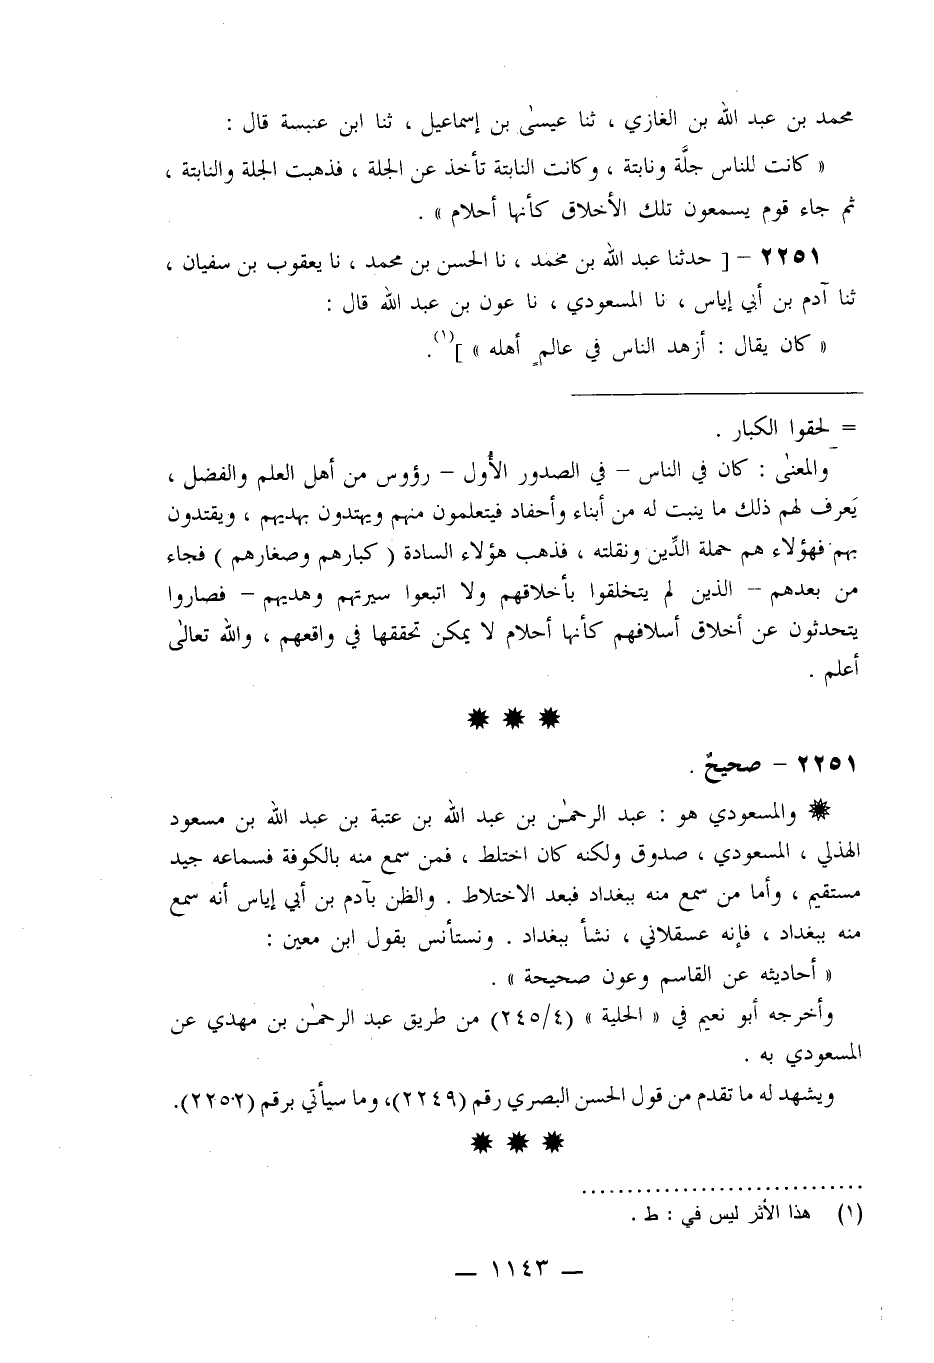 محمد بن عبد الله بن الغازي ، ثنا عيسىٰ بن إسماعيل ، ثنا ابن عنبسة قال :
« كانت للناس جلَّة ونابتة ، وكانت النابتة تأخذ عن الجلة ، فذهبت الجلة والنابتة ،
ثم جاء قوم يسمعون تلك الأخلاق كأنها أحلام » .
٢٢٥١ – [ حدثنا عبد الله بن محمد ، نا الحسن بن محمد ، نا يعقوب بن سفيان ،
ثنا آدم بن أبي إياس ، نا المسعودي ، نا عون بن عبد الله قال :
« كان يقال : أزهد الناس في عالمٍ أهله » ](١).
= لحقوا الكبار .
والمعنىٰ : كان في الناس – في الصدور الأُول – رؤوس من أهل العلم والفضل ،
يَعرف لهم ذلك ما ينبت له من أبناء وأحفاد فيتعلمون منهم ويهتدون بهديهم ، ويقتدون
بهم فهؤلاء هم حملة الدِّين ونقلته ، فذهب هؤلاء السادة ( كبارهم وصغارهم ) فجاء
من بعدهم – الذين لم يتخلقوا بأخلاقهم ولا اتبعوا سيرتهم وهديهم – فصاروا
يتحدثون عن أخلاق أسلافهم كأنها أحلام لا يمكن تحققها في واقعهم ، والله تعالىٰ
أعلم .
٢٢٥١ – صحيحٌ .
والمسعودي هو : عبد الرحمٰن بن عبد الله بن عتبة بن عبد الله بن مسعود
الهذلي ، المسعودي ، صدوق ولكنه كان اختلط ، فمن سمع منه بالكوفة فسماعه جيد
مستقيم ، وأما من سمع منه ببغداد فبعد الاختلاط . والظن بآدم بن أبي إياس أنه سمع
منه ببغداد ، فإنه عسقلاني ، نشأ ببغداد . ونستأنس بقول ابن معين :
« أحاديثه عن القاسم وعون صحيحة » .
وأخرجه أبو نعيم في « الحلية » (٢٤٥/٤) من طريق عبد الرحمٰن بن مهدي عن
المسعودي به .
ويشهد له ما تقدم من قول الحسن البصري رقم (٢٢٤٩)، وما سيأتي برقم (٢٢٥٢).
(١) هذا الأثر ليس في : ط .
— ١١٤٣ —